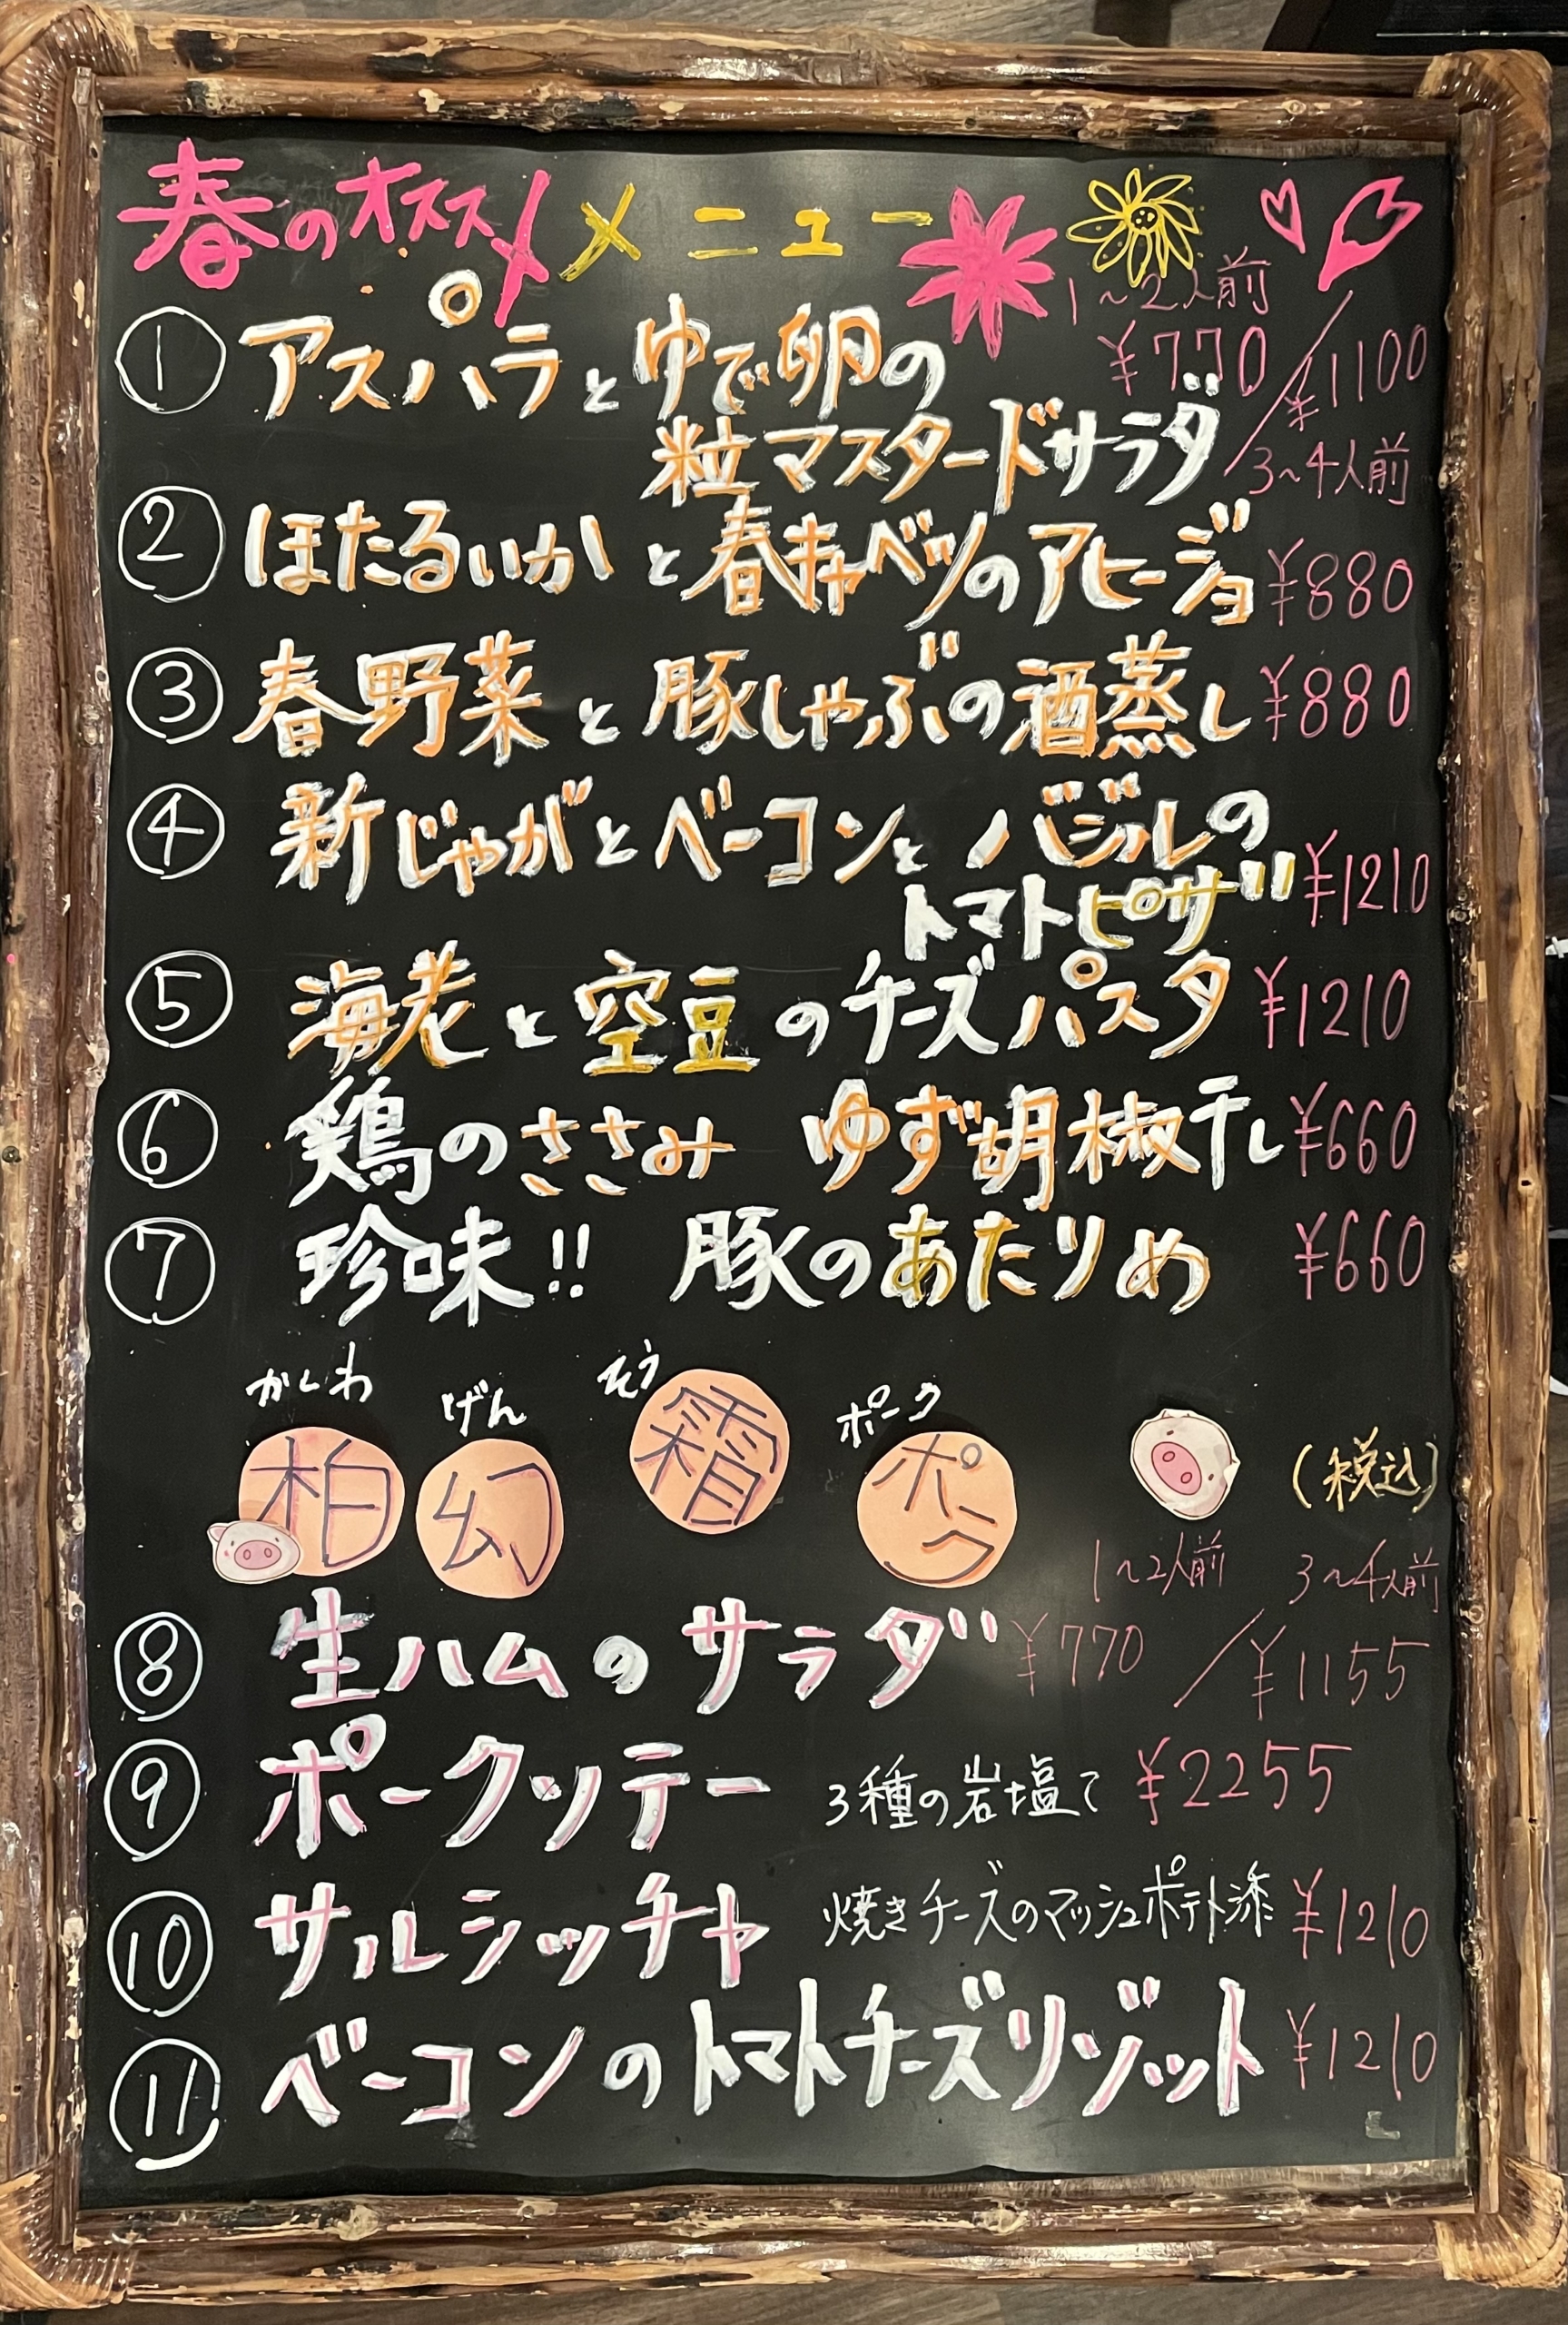 春のオススメメニュー
1~2人前
① アスパラとゆで卵の ¥770/¥1100
粒マスタードサラダ 3~4人前
② ほたるいかと春キャベツのアヒージョ ¥880
③ 春野菜と豚しゃぶの酒蒸し ¥880
④ 新じゃがとベーコンとバジルの
トマトピザ ¥1210
⑤ 海老と空豆のチーズパスタ ¥1210
⑥ 鶏のささみ ゆず胡椒干し ¥660
⑦ 珍味!! 豚のあたりめ ¥660
かしわ げん そう ポーク
柏 幻 霜 ポーク (税込)
1~2人前 3~4人前
⑧ 生ハムのサラダ ¥770/¥1155
⑨ ポークソテー 3種の岩塩で ¥2255
⑩ サルシッチャ 焼きチーズのマッシュポテト添 ¥1210
⑪ ベーコンのトマトチーズリゾット ¥1210